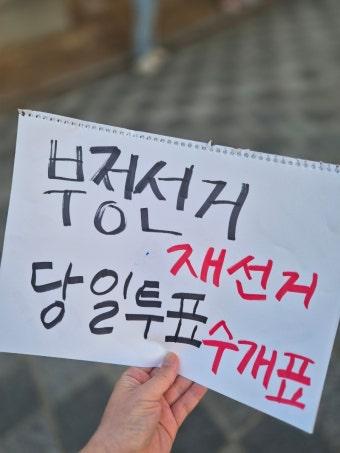 부정선거
재선거
당일투표
수개표